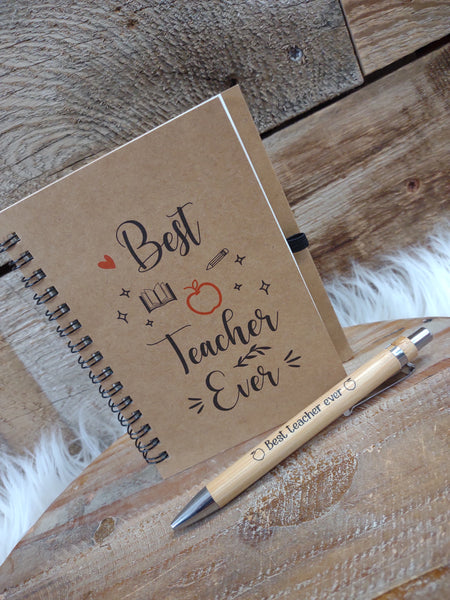 Best
Teacher
Ever
Best teacher ever